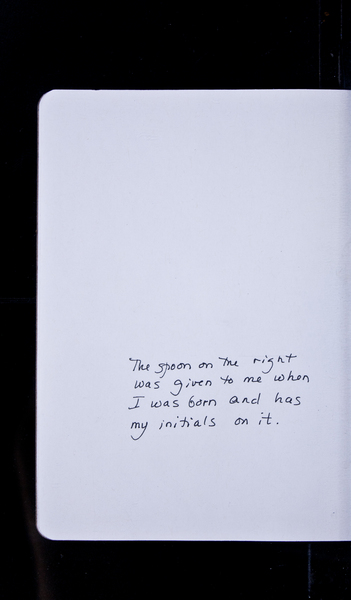 The spoon on the right
was given to me when
I was born and has
my initials on it.